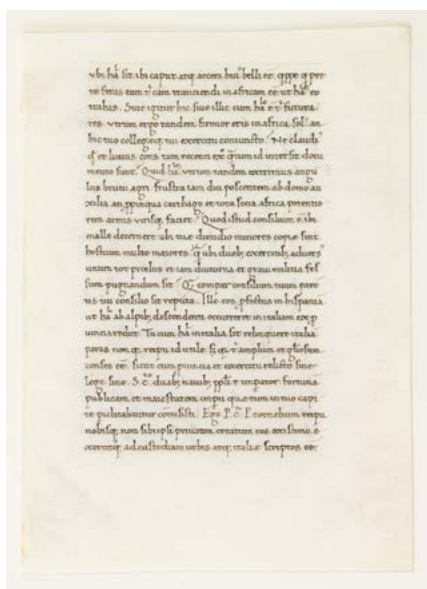 vbi hā sit ibi caput atq; arcem huiꝰ belli eē. qppe q pre
te feras eam t cām traiiciendi in africam eē ut hā eo
trahas. Siue igitur hic siue illic cum hā ē t futura
res. vtrum ergo tandem firmior eris in africa solꝰ an
hic tuo collegeq; tui exercitu coniuncto. Ne claudiꝰ
qd et liuius cons tam recenti exº quantum id intersit docu
mento sunt. Quid hā. vtrum tandem extremus angu
lus brutii agri frustra iam diu poscentem ab domo au
xilia. an ppinqua carthago et tota socia africa potentio
rem armis virisq; faciet. Quod istud consilium ē. ibi
malle decernere ubi tue dimidio minores copie sint
hostium multo maiores. q ubi duob; exercitib; aduersꝰ
unum tot preliis et tam diuturna et graui militia fes
sum pugnandum sit. Q compar consilium tuum pare
tis tui consilio sit reputa. Ille cos. pfectus in hispaniā
ut hā ab alpib; descendenti occurreret in italiam ex p
uincia redit. Tu cum hā in italia sit relinquere italiā
paras non q reipu id utile sȝ q t amplum et gliosum
censes eē. sicut cum puincia et exercitu relicto sine
lege sine. S. c. duab; nauib; ppli r impator fortunā
publicam et maiestatem impii que tum in tuo capi
te piclitabantur comisisti. Ego P. c. P. cornelium reipu
nobisq; non sibi ipsi priuatim creatum cos existimo. e
xercitusq; ad custodiam urbis atq; italie scriptos eē.